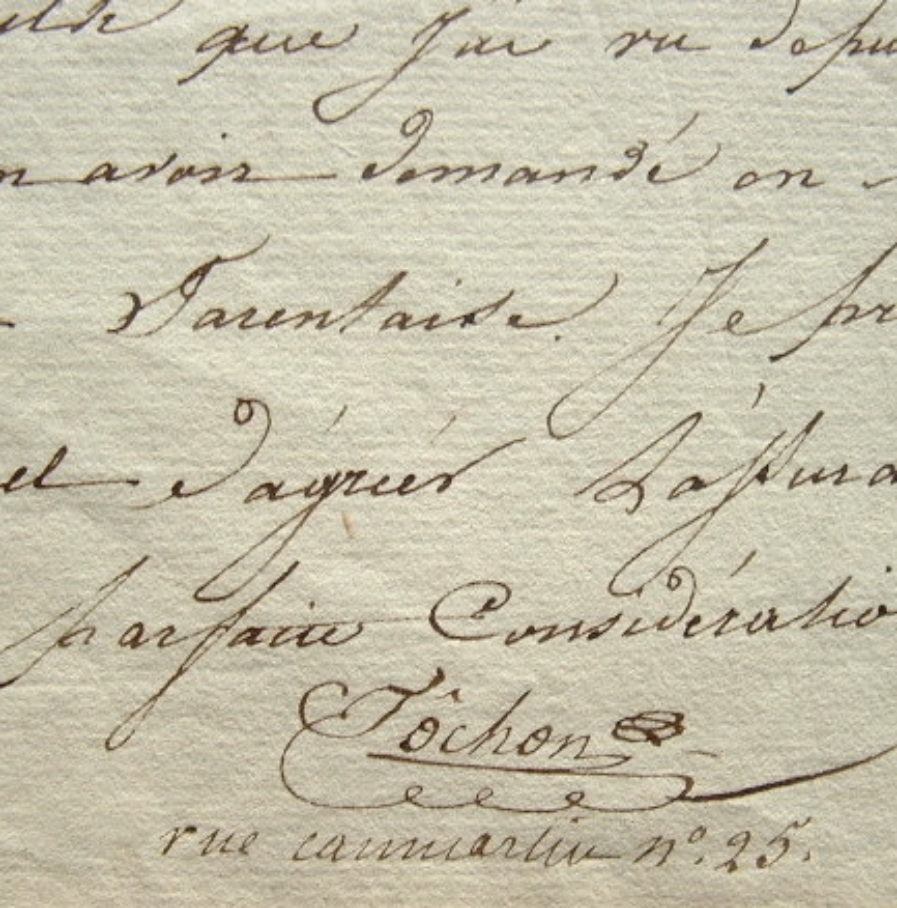 que J'ai vu depu
n avoir demandé on
Tarentaise. Je pr
el d'agréér L'assura
parfaite Considératio
Tôchon
rue caumartin n° 25.